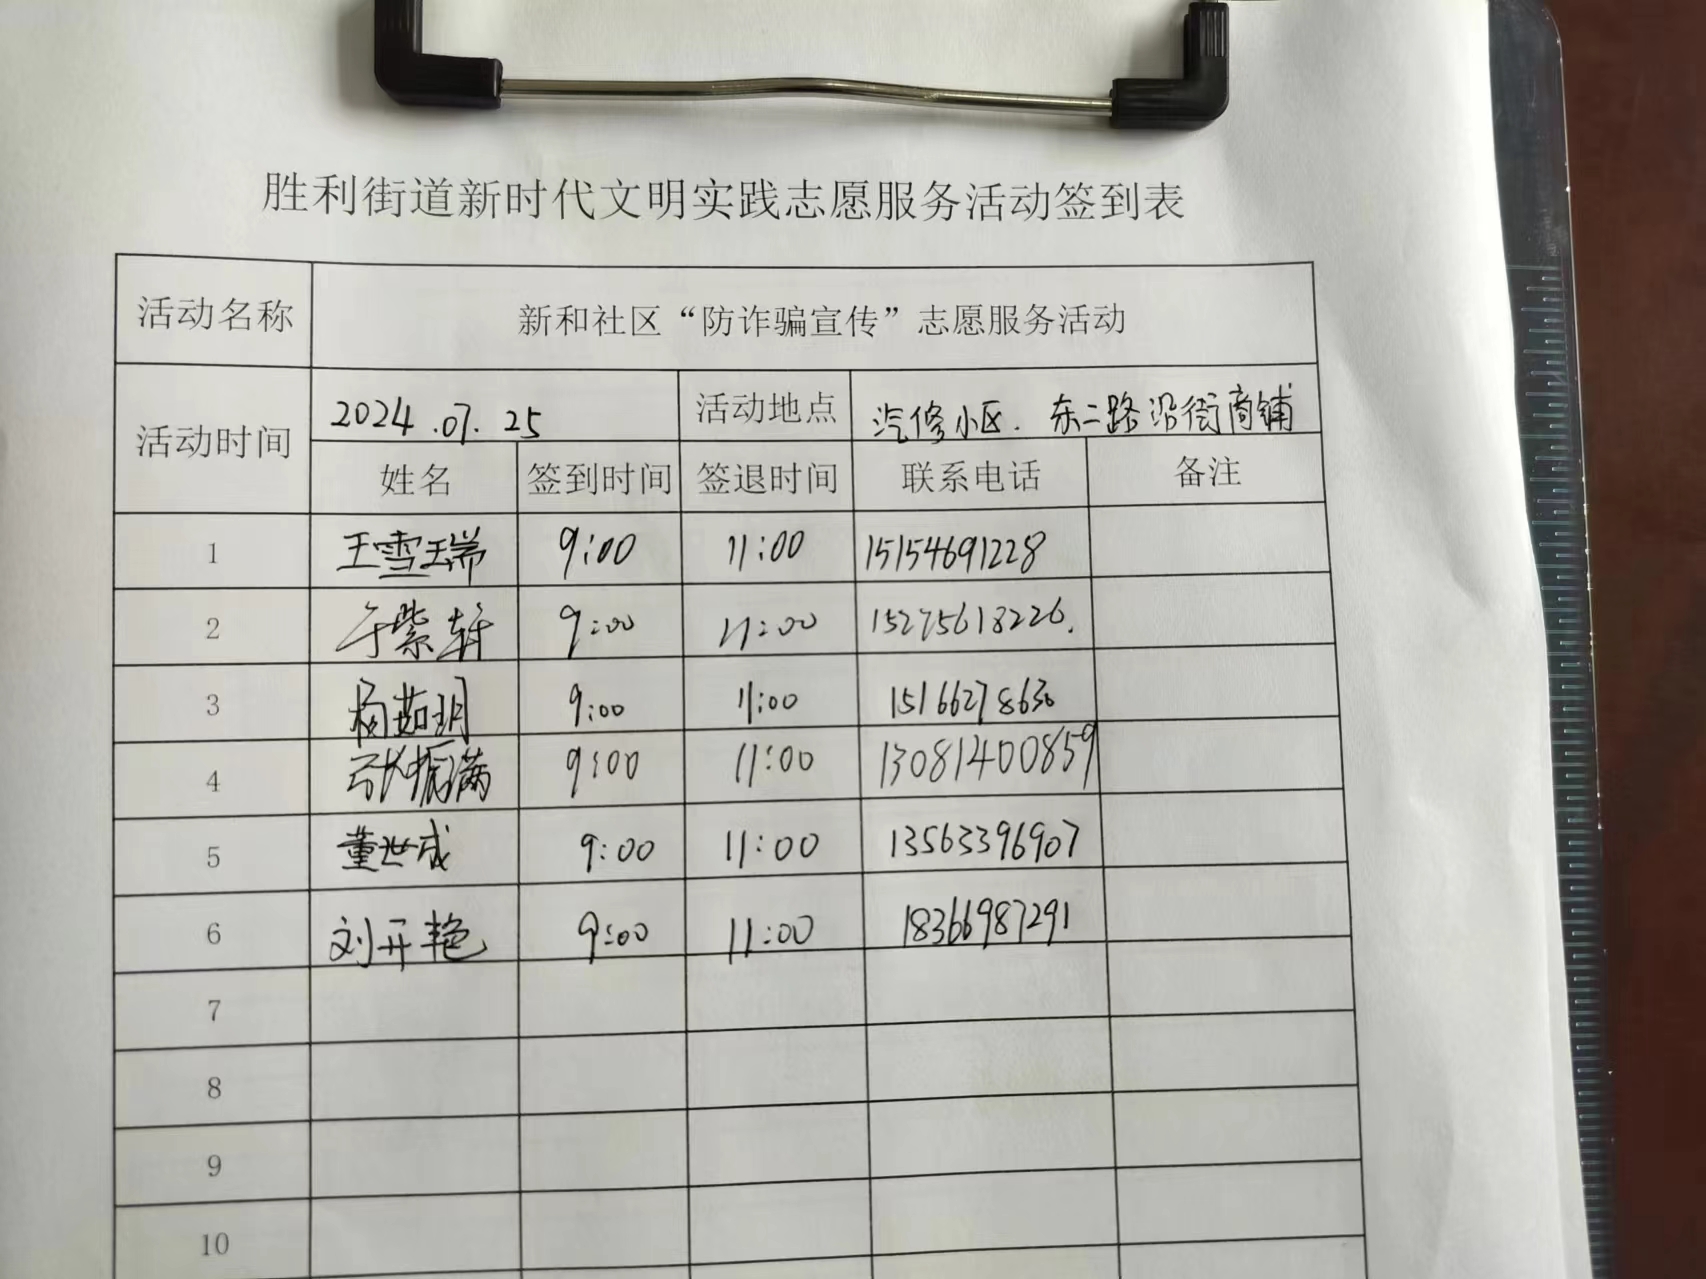 胜利街道新时代文明实践志愿服务活动签到表
活动名称 新和社区“防诈骗宣传”志愿服务活动
活动时间 2024.07.25 活动地点 汽修小区.东二路沿街商铺
姓名 签到时间 签退时间 联系电话 备注
1 王雪瑞 9:00 11:00 15154691228
2 于紫轩 9:00 11:00 15275618226.
3 杨茹玥 9:00 11:00 15166278630
4 张振满 9:00 11:00 13081400859
5 董世成 9:00 11:00 13563396907
6 刘开艳 9:00 11:00 18366987291
7
8
9
10